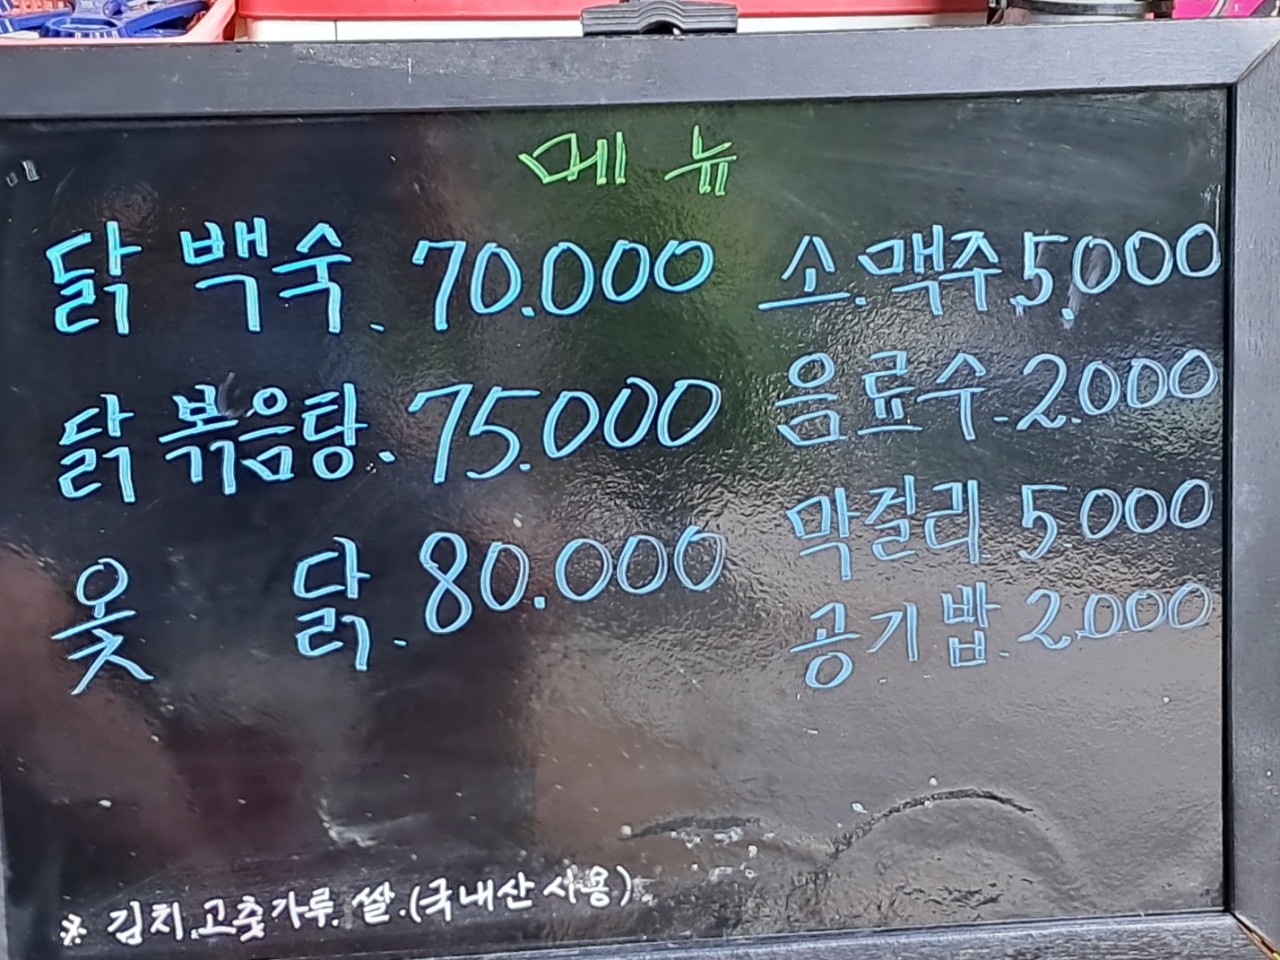 메뉴
닭백숙. 70.000
닭볶음탕. 75.000
옻 닭. 80.000
소.맥주 5,000
음료수-2.000
막걸리 5000
공기밥. 2.000
※ 김치.고춧가루. 쌀.(국내산 사용)